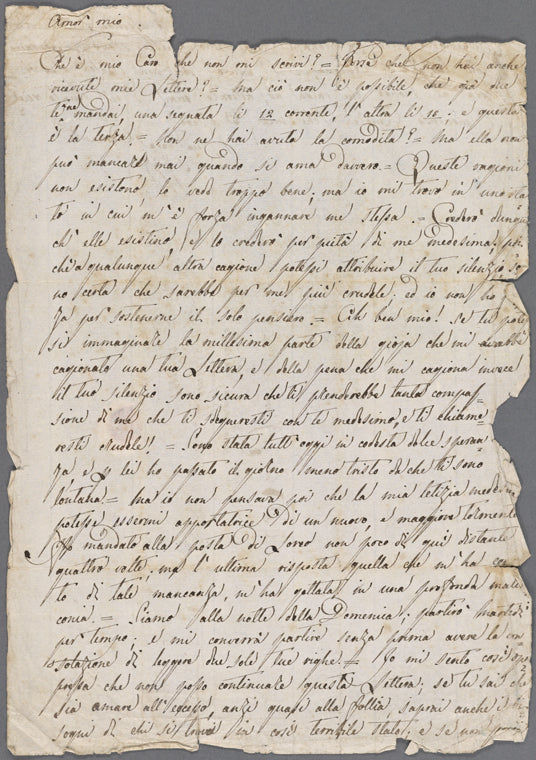 Amor mio.
Che è mio Caro che non mi scrivi? = Forse che non hai anche
ricevute mie Lettere? = Ma ciò non è possibile, che già due
te ne mandai, una segnata li 12 corrente, l'altra li 10: e questa
è la terza. = Non ne hai avuta la comodità? = Ma ella non
può mancare mai quando si ama davvero. = Queste ragioni
non esistono, lo vedo troppo bene; ma io mi trovo in uno sta
to in cui m'è forza ingannare me stessa. = Crederò dunque
ch'elle esistino, e lo crederò per pietà di me medesima, poi
chè a qualunque altra cagione potessi attribuire il tuo silenzio, so
no certa che sarebbe per me più crudele; ed io non ho
forza per sostenerne il solo pensiero. = Eh ben mio! se tu potes
si immaginare la millesima parte della gioja che mi avrebbe
cagionato una tua Lettera, e della pena che mi cagiona invece
il tuo silenzio sono sicura che ti prenderebbe tanta compas
sione di me che ti adireresti con te medesimo, e ti chiame
resti crudele! = Sono stata tutt'oggi in codesta dolce speran
za e per lei ho passato il giorno meno tristo da che ti sono
lontana. = Ma io non pensava poi che la mia letizia medesima
potesse essermi apportatrice di un nuovo, e maggiore tormento
Ho mandato alla posta di Lovero non poco di qui distante
quattro volte; ma l'ultima risposta quella che m'ha
to di tale mancanza, m'ha gettata in una profonda malin
conia. = Siamo alla notte della Domenica; partirò martedì
per tempo; e mi converrà partire senza prima avere la con
solazione di leggere due sole tue righe. = Io mi sento così op
pressa che non posso continuare questa Lettera; se tu sai che
sia amare all'eccesso, anzi quasi alla follia saprai anche il bi
sogni di chi si trova in così terribile stato; e se non